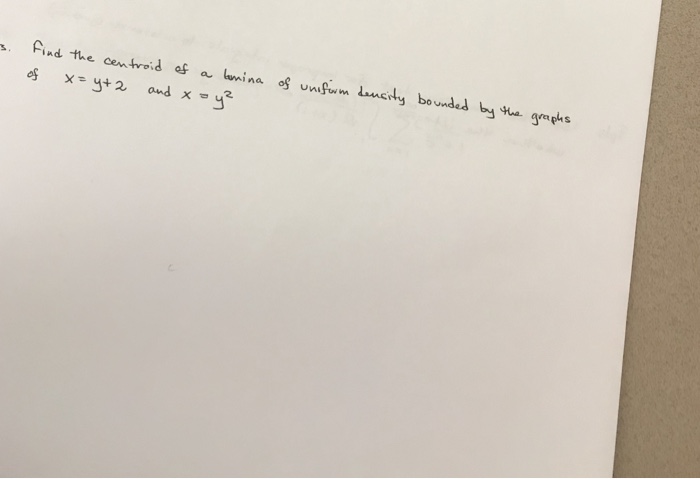 3. Find the centroid of a lamina of uniform density bounded by the graphs
of x = y+2 and x = y²